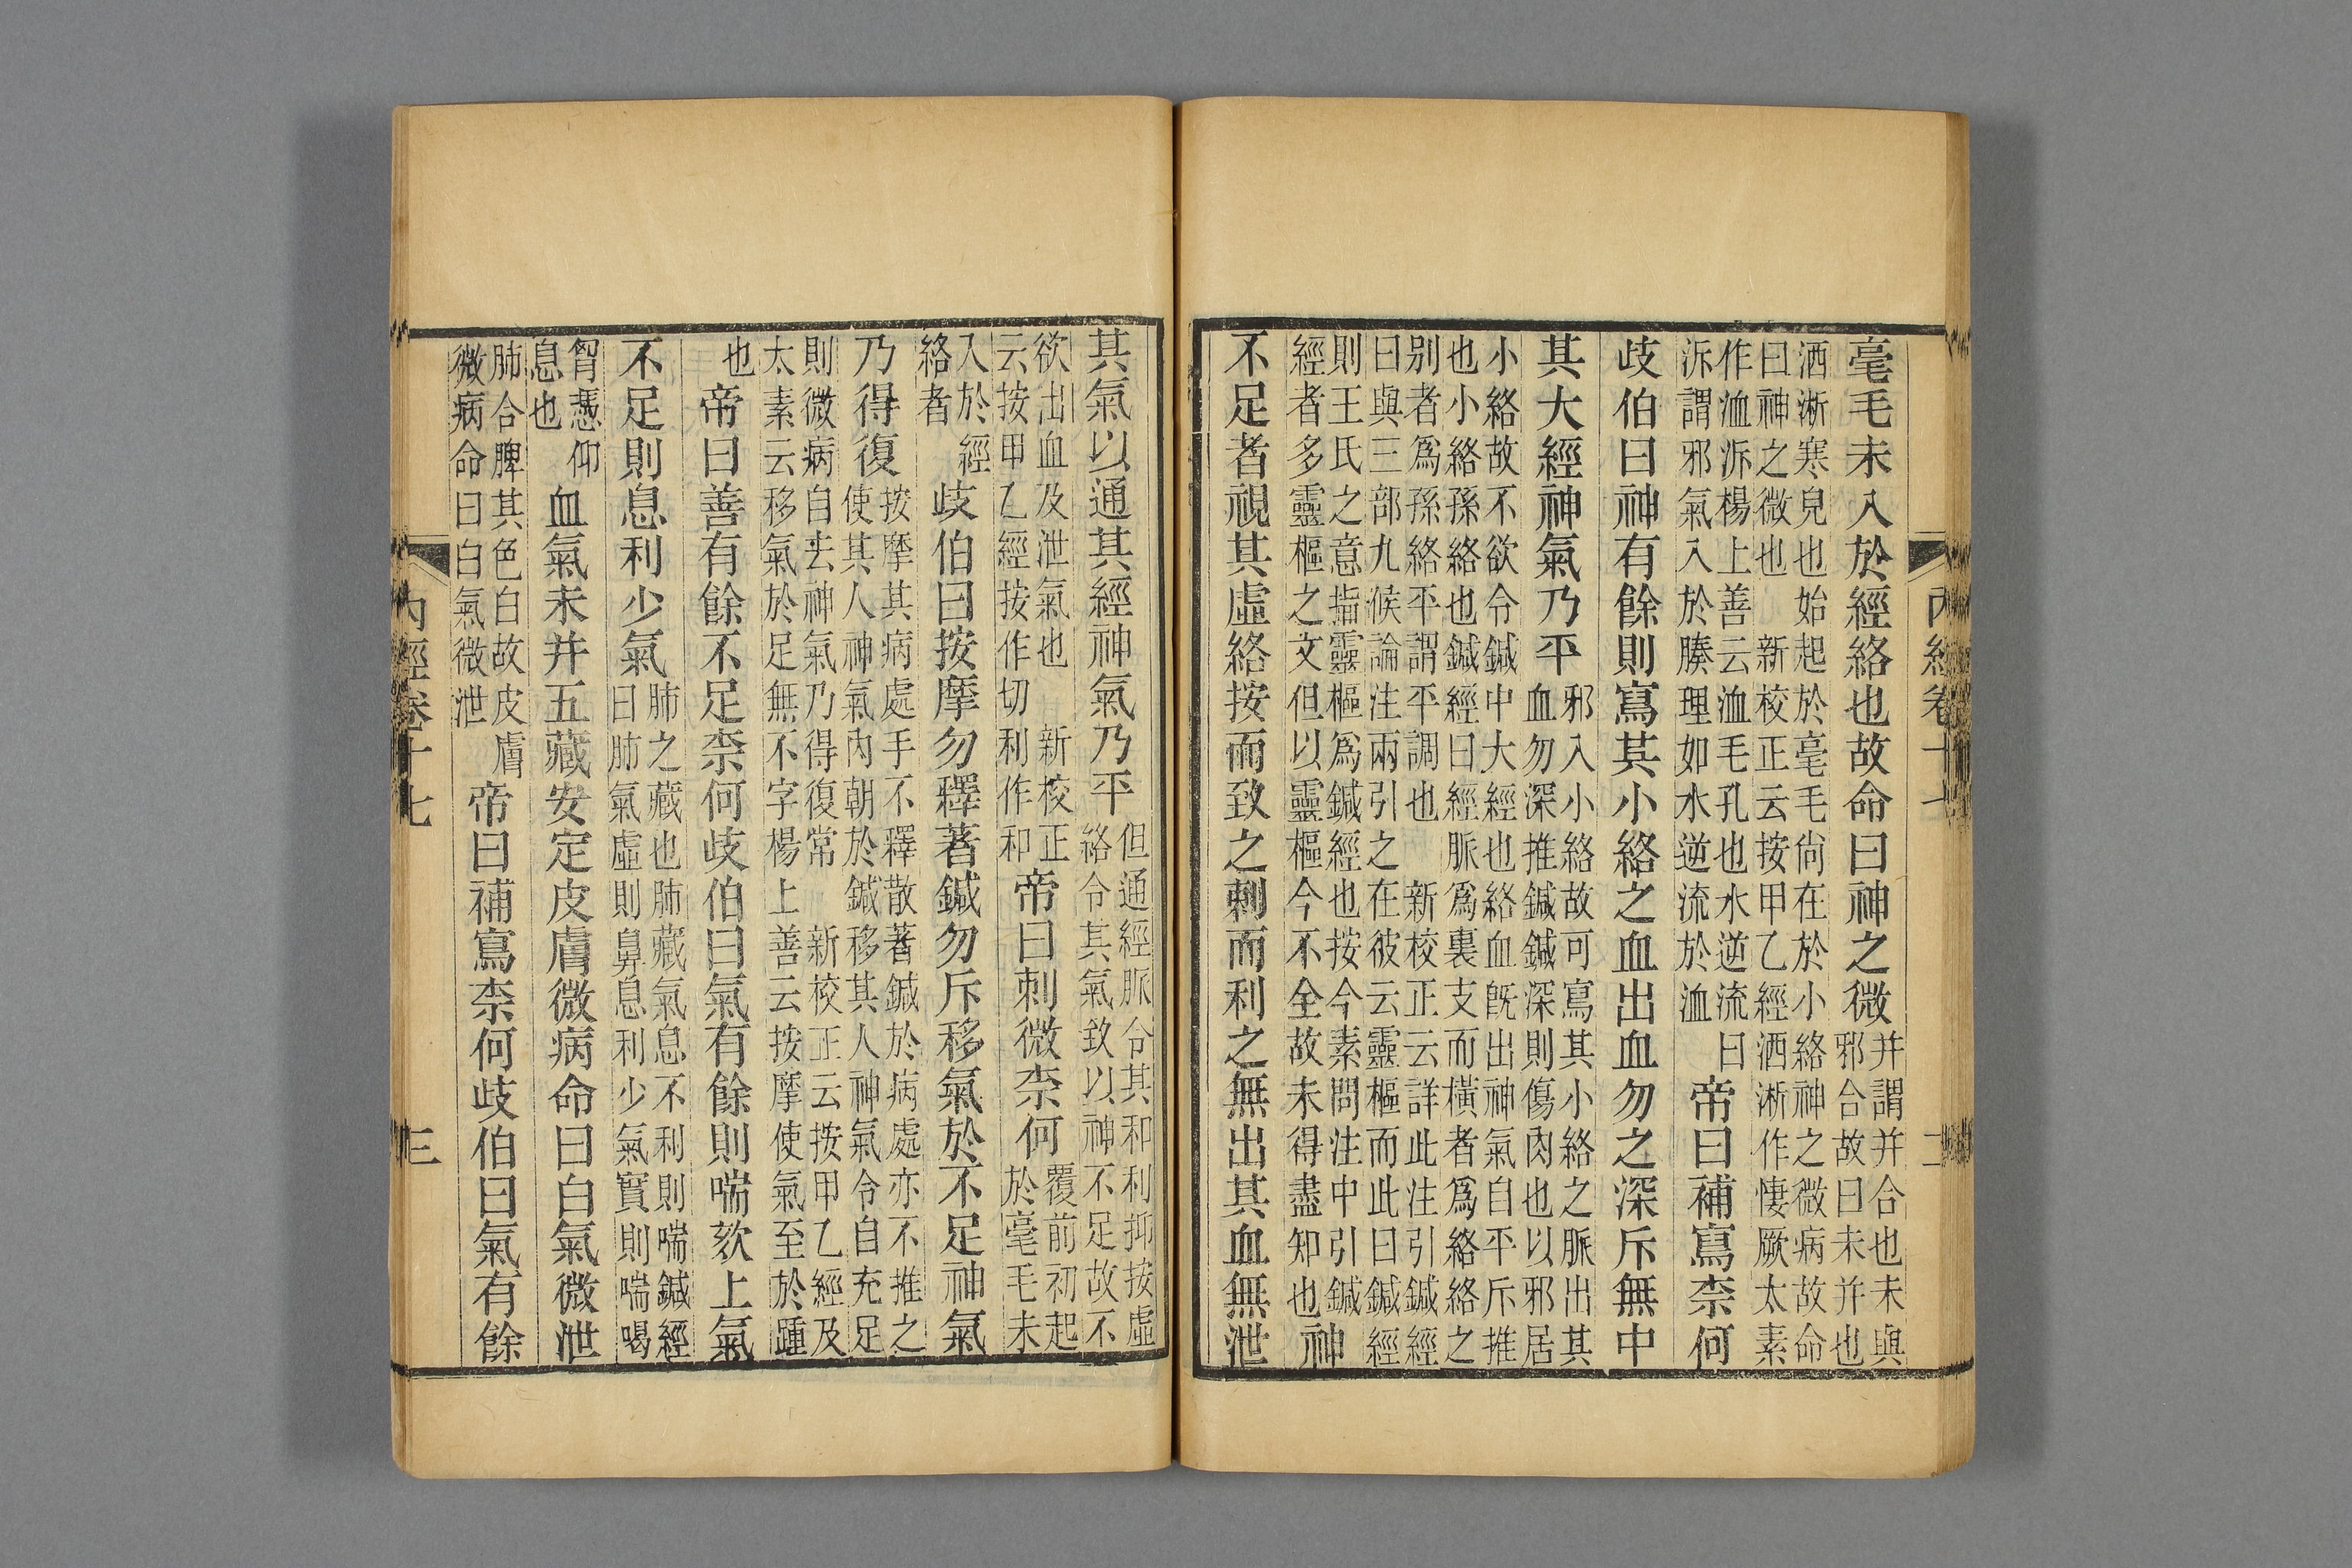 內經卷十七
二
毫毛未入於經絡也故命曰神之微并謂并合也未與邪合故曰未并也
洒淅寒皃也始起於毫毛尙在於小絡神之微病故命
曰神之微也 新校正云按甲乙經洒淅作悽厥太素
作洫泝楊上善云洫毛孔也水逆流曰泝謂邪氣入於腠理如水逆流於洫帝曰補寫柰何
歧伯曰神有餘則寫其小絡之血出血勿之深斥無中
其大經神氣乃平邪入小絡故可寫其小絡之脈出其血勿深推鍼鍼深則傷肉也以邪居
小絡故不欲令鍼中大經也絡血旣出神氣自平斥推
也小絡孫絡也鍼經曰經脈爲裏支而橫者爲絡絡之
別者爲孫絡平謂平調也 新校正云詳此注引鍼經
曰與三部九候論注兩引之在彼云靈樞而此曰鍼經
則王氏之意指靈樞爲鍼經也按今素問注中引鍼經者多靈樞之文但以靈樞今不全故未得盡知也神
不足者視其虛絡按而致之刺而利之無出其血無泄
其氣以通其經神氣乃平但通經脈令其和利抑按虛絡令其氣致以神不足故不
欲出血及泄氣也 新校正云按甲乙經按作切利作和帝曰刺微柰何覆前初起於毫毛未
入於經絡者歧伯曰按摩勿釋著鍼勿斥移氣於不足神氣
乃得復按摩其病處手不釋散著鍼於病處亦不推之使其人神氣內朝於鍼移其人神氣令自充足
則微病自去神氣乃得復常 新校正云按甲乙經及
太素云移氣於足無不字楊上善云按摩使氣至於踵
也帝曰善有餘不足柰何歧伯曰氣有餘則喘欬上氣
不足則息利少氣肺之藏也肺藏氣息不利則喘鍼經曰肺氣虛則鼻息利少氣實則喘喝
胷憑仰息也血氣未并五藏安定皮膚微病命曰白氣微泄
肺合脾其色白故皮膚微病命曰白氣微泄帝曰補寫柰何歧伯曰氣有餘
內經卷十七
三